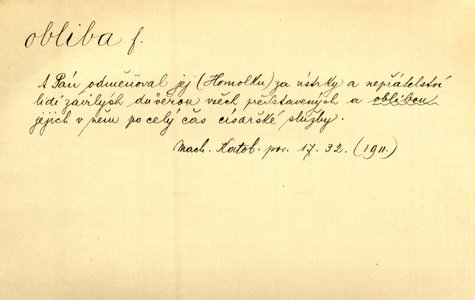 obliba f.
A Pán odměňoval jej (Homolku) za ústrky a nepřátelství
lidí závilých důvěrou všech představených a oblibou
jejich v něm po celý čas císařské služby.
Mach. Katob. pov. 17. 32. (1911.)